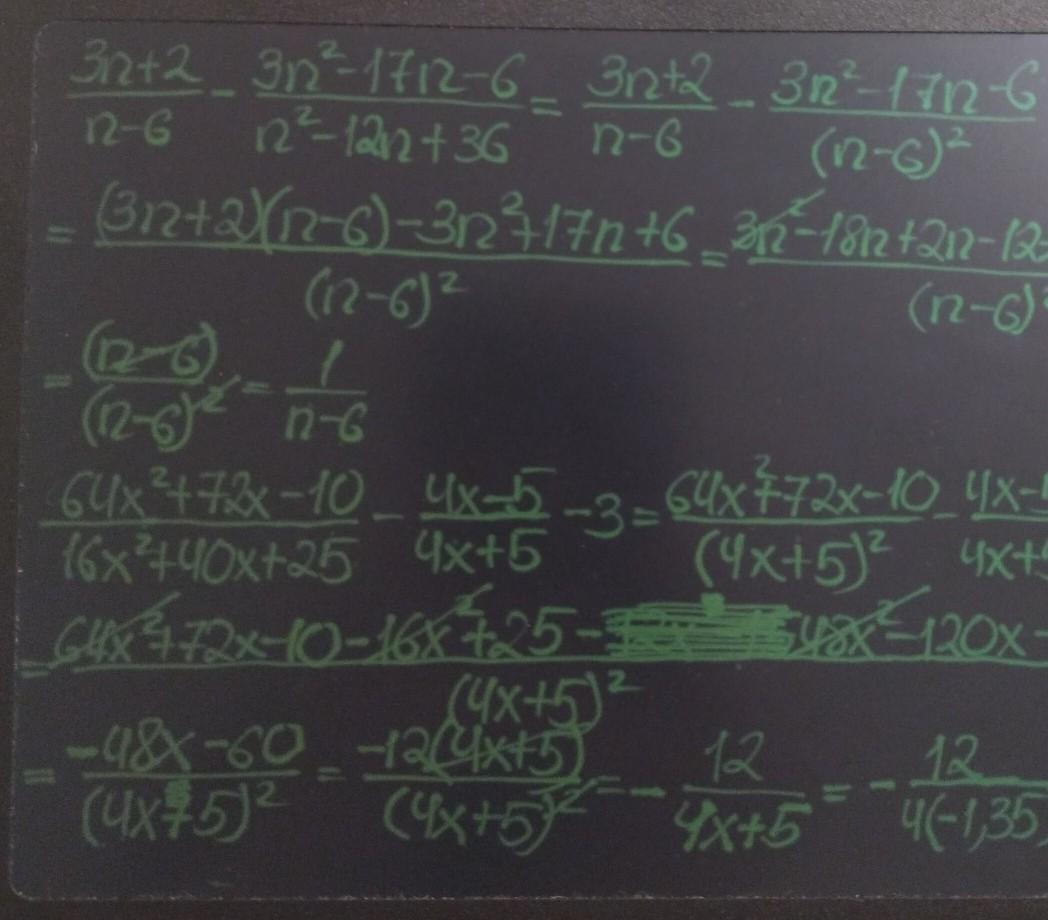 (3n+2)/(n-6) - (3n²-17n-6)/(n²-12n+36) = (3n+2)/(n-6) - (3n²-17n-6)/(n-6)²
= ((3n+2)(n-6)-3n²+17n+6)/(n-6)² = (3n²-18n+2n-12)/(n-6)²
= (n-6)/(n-6)² = 1/(n-6)
(64x²+72x-10)/(16x²+40x+25) - (4x-5)/(4x+5) - 3 = (64x²+72x-10)/(4x+5)² - (4x-5)/(4x+5)
= (64x²+72x-10-16x²+25- 48x²-120x-)/(4x+5)²
= (-48x-60)/(4x+5)² = (-12(4x+5))/(4x+5)² = - 12/(4x+5) = - 12/(4(-1,35)